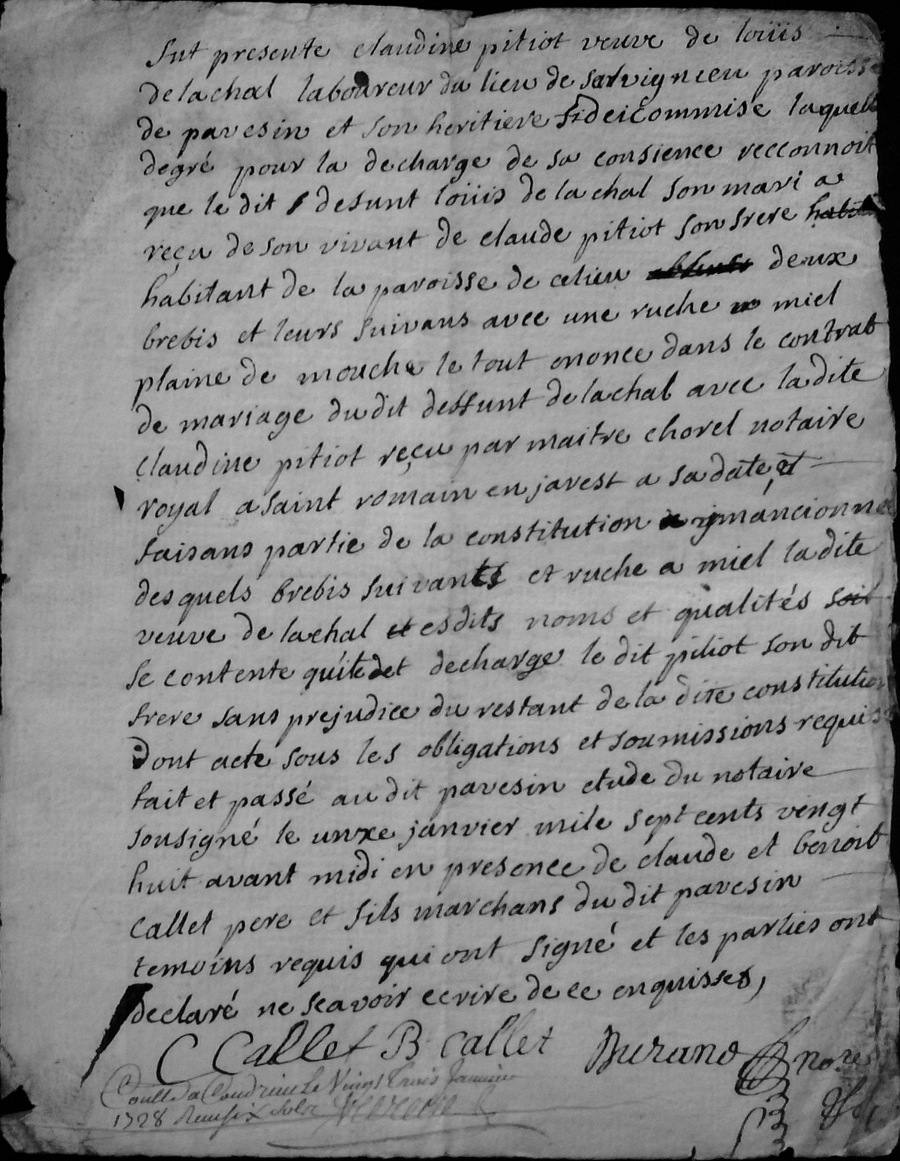 fut presente claudine pitiot veuve de loüis
delachal laboureur du lieu de salvignieu paroisse
de pavesin et son heritiere fideicommise laquelle
degré pour la decharge de sa consience recconnoit
que le dit defunt loüis de la chal son mari a
reçu de son vivant de claude pitiot son frere habit
habitant de la paroisse de celieu deux
brebis et leurs suivans avec une ruche a miel
plaine de mouche le tout enonce dans le contrat
de mariage du dit deffunt delachal avec la dite
claudine pitiot reçu par maitre chorel notaire
royal a saint romain en jarest a sa date et
faisans partie de la constitution
desquels brebis suivants et ruche a miel la dite
veuve de lachal esdits noms et qualités soit
se contente quite et decharge le dit pitiot son dit
frere sans prejudice du restant de la dite constitution
Dont acte sous les obligations et soumissions requises
fait et passé au dit pavesin etude du notaire
sousigné le unxe janvier mile sept cents vingt
huit avant midi en presence de claude et benoit
callet pere et fils marchans du dit pavesin
temoins requis qui ont signé et les parties ont
declaré ne scavoir ecrire de ce enquisses,
C Callet B callet Durand nore
a Condrieu le Vingt Trois Janvier
1728